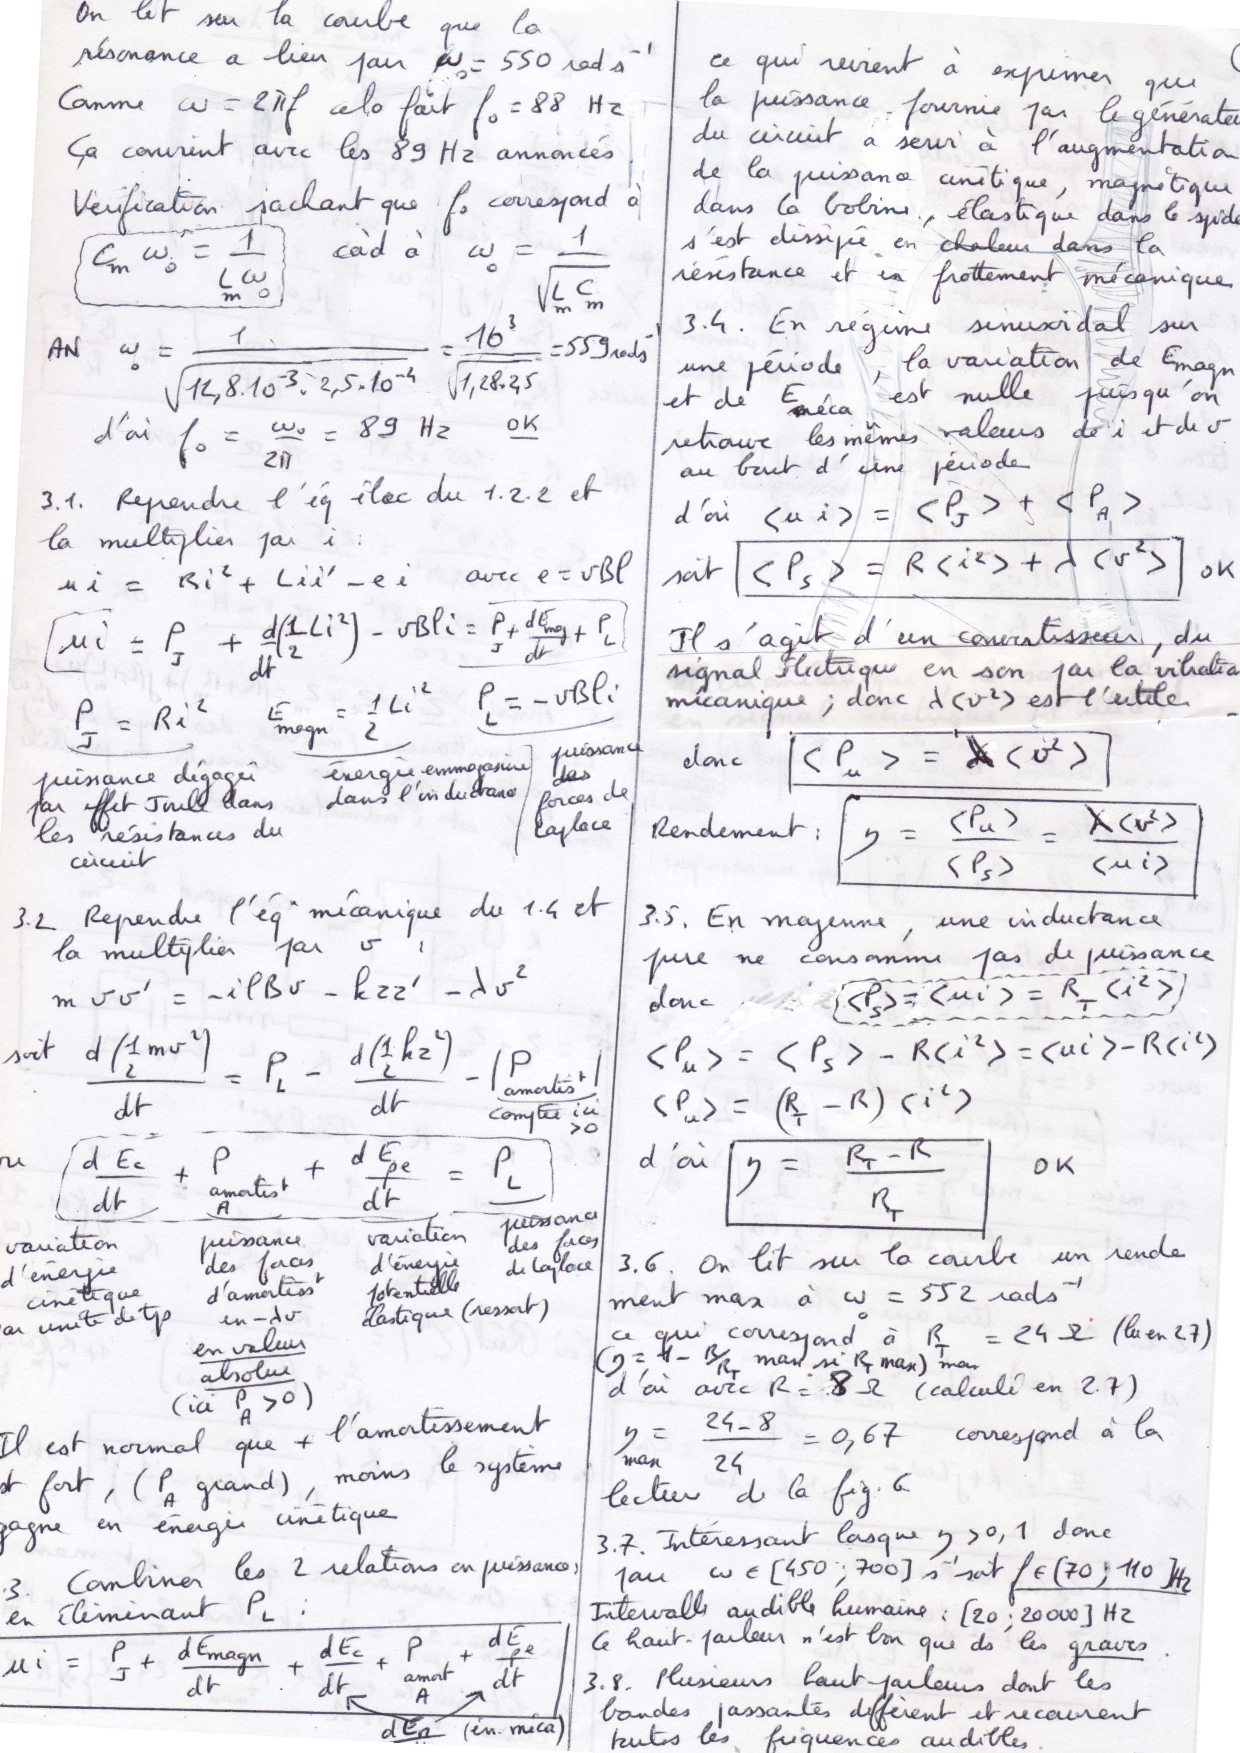 On lit sur la courbe que la
résonance a lieu pour ω₀ = 550 rad s⁻¹
Comme ω = 2πf cela fait f₀ = 88 Hz
Ça convient avec les 89 Hz annoncés
Vérification sachant que f₀ correspond à
Cm ω₀ = 1/(Lm ω₀) càd à ω₀ = 1/√(Lm Cm)
AN ω₀ = 1/√(12,8.10⁻³.2,5.10⁻⁴) = 10³/√(1,28.2,5) = 559 rad s⁻¹
d'où f₀ = ω₀/2π = 89 Hz OK
3.1. Reprendre l'éq élec du 1.2.2 et
la multiplier par i :
ui = Ri² + Lii' - ei avec e = vBl
ui = P_J + d/dt(1/2 Li²) - vBli = P_J + dEmag/dt + P_L
P_J = Ri² Emagn = 1/2 Li² P_L = -vBli
puissance dégagée par effet Joule dans les résistances du circuit
énergie emmagasinée dans l'inductance
puissance des forces de Laplace
3.2 Reprendre l'éq° mécanique du 1.4 et
la multiplier par v :
m v v' = -ilBv - kzz' - λv²
soit d(1/2 mv²)/dt = P_L - d(1/2 kz²)/dt - |P amortist|
comptée ici >0
ou dEc/dt + P amortist A + dEpe/dt = P_L
variation d'énergie cinétique par unité de tps
puissance des forces d'amortist en -λv en valeur absolue (ici P_A > 0)
variation d'énergie potentielle élastique (ressort)
puissance des forces de Laplace
Il est normal que + l'amortissement
est fort, (P_A grand), moins le système
gagne en énergie cinétique
3. Combiner les 2 relations en puissances
en éliminant P_L :
ui = P_J + dEmagn/dt + dEc/dt + P amort A + dEpe/dt
(én. méca)
ce qui revient à exprimer que
la puissance fournie par le générateu
du circuit a servi à l'augmentation
de la puissance cinétique, magnétique
dans la bobine, élastique dans le spide
s'est dissipée en chaleur dans la
résistance et en frottement mécanique
3.4. En régime sinusoïdal sur
une période, la variation de Emagn
et de Eméca est nulle puisqu'on
retrouve les mêmes valeurs de i et de v
au bout d'une période
d'où <ui> = <P_J> + <P_A>
soit <P_S> = R<i²> + λ<v²> OK
Il s'agit d'un convertisseur, du
signal électrique en son par la vibratio
mécanique ; donc λ<v²> est l'utile
donc <P_u> = λ<v²>
Rendement : η = <P_u>/<P_S> = λ<v²>/<ui>
3.5. En moyenne, une inductance
pure ne consomme pas de puissance
donc <P_S> = <ui> = R_T<i²>
<P_u> = <P_S> - R<i²> = <ui> - R<i²>
<P_u> = (R_T - R)<i²>
d'où η = (R_T - R)/R_T OK
3.6. On lit sur la courbe un rende
ment max à ω₀ = 552 rad s⁻¹
ce qui correspond à R_T max = 24 Ω (lu en 2.7)
(η = 1 - R/R_T max si R_T max)
d'où avec R = 8 Ω (calculé en 2.7)
η max = (24 - 8)/24 = 0,67 correspond à la
lecture de la fig. 6
3.7. Intéressant lorsque η > 0,1 donc
pour ω ∈ [450 ; 700] s⁻¹ soit f ∈ [70 ; 110] Hz
Intervalle audible humaine : [20 ; 20000] Hz
Ce haut-parleur n'est bon que ds les graves.
3.8. Plusieurs haut-parleurs dont les
bandes passantes diffèrent et recouvrent
toutes les fréquences audibles.